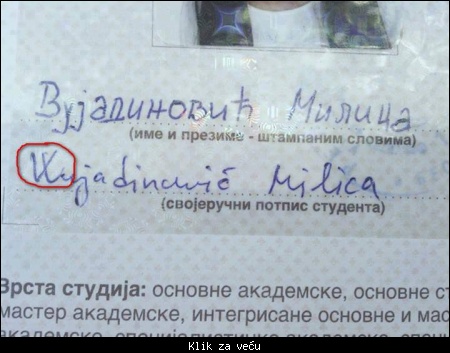 Вујадиновић Милица
(име и презиме - штампаним словима)
Vujadinović Milica
(својеручни потпис студента)
Врста студија: основне академске, основне ст
мастер академске, интегрисане основне и мас
академске, специјалистичке академске, специ
Klik za veću